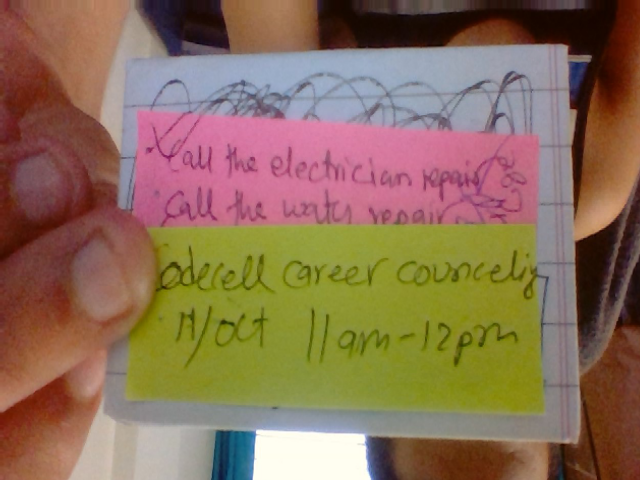 Call the electrician repair
Call the water repair
codecell career counceling
11am-12pm